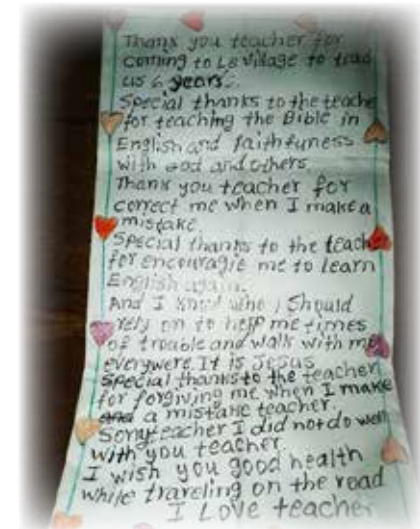 Thank you teacher for
coming to L8 village to
us 6 years.
Special thanks to the teache
for teaching the Bible in
English and faithfuness
with God and others
Thank you teacher for
correct me when I make a
mistake
Special thanks to the teacher
for encouragie me to learn
English again.
And I know who I should
rely on to help me times
of trouble and walk with me
everywere. It is Jesus
Special thanks to the teacher
for forgiving me when I make
a mistake teacher.
Sorry teacher I did not do well
with you teacher
I wish you good health
while traveling on the road
I Love teacher